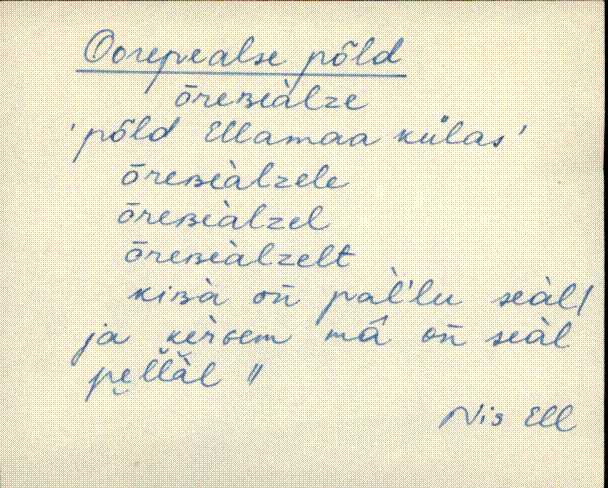 Oorepealse põld
ōreʙeàlze
'põld Ellamaa külas'
ōreʙeàlzele
ōreʙeàlzel
ōreʙeàlzelt
kiʙà on̄ pal̀'lu seàl/
ja kèrɢem mâ on̄ seàl
pel̆l̆àl //
Nis Ell